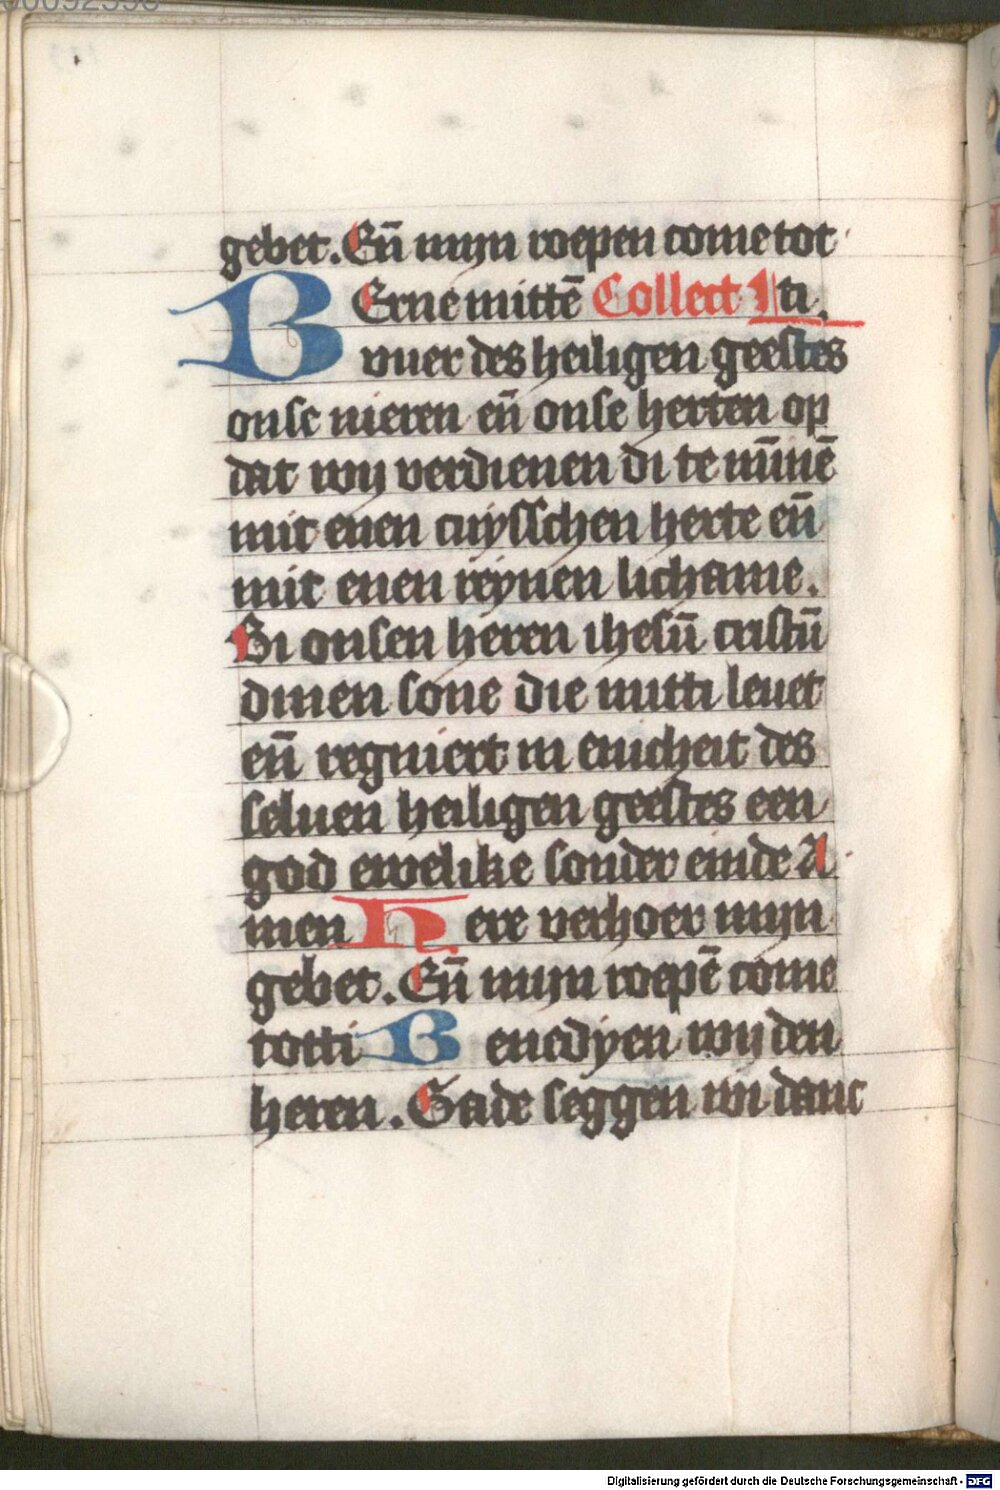 00092598
gebet. En̄ mijn roepen come tot
BErne mittē Collect ti.
vuer des heiligen geestes
onse nieren en̄ onse herten op
dat wij verdienen di te mīnē
mit enen cuysschen herte en̄
mit enen reynen lichame.
Bi onsen heren ihesū cristū
dinen sone die mitti leuet
en̄ regniert in enicheit des
seluen heiligen geestes een
god ewelike sonder einde A
men Here verhoer mijn
gebet. En̄ mijn roepē come
totti Benedyen wij den
heren. Gade seggen wi danc
Digitalisierung gefördert durch die Deutsche Forschungsgemeinschaft - DFG